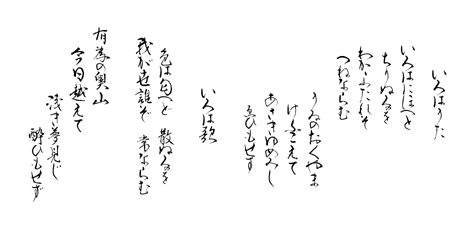 いろはうた
いろはにほへと
ちりぬるを
わかよたれそ
つねならむ
うゐのおくやま
けふこえて
あさきゆめみし
ゑひもせす
いろは歌
色は匂へど 散ぬるを
我が世誰ぞ 常ならむ
有為の奥山
今日越えて
浅き夢見じ
酔ひもせず